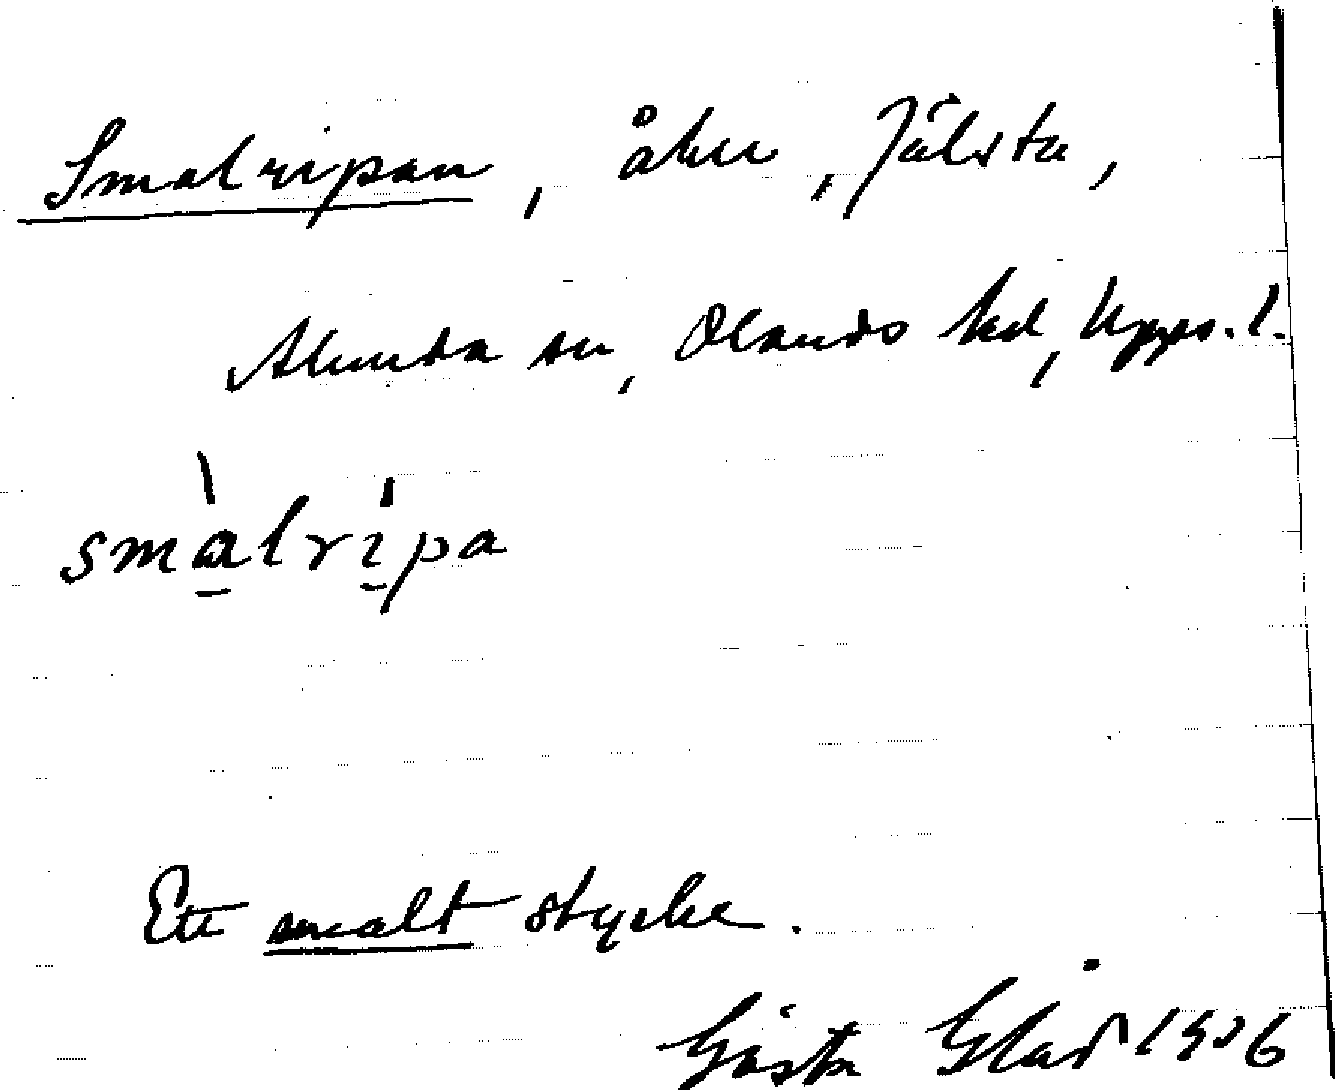 Smalripan, åker, Jälsta,
Alunda sn, Olands hd, Upps. l.
smàlrípa
Ett smalt stycke.
Gösta